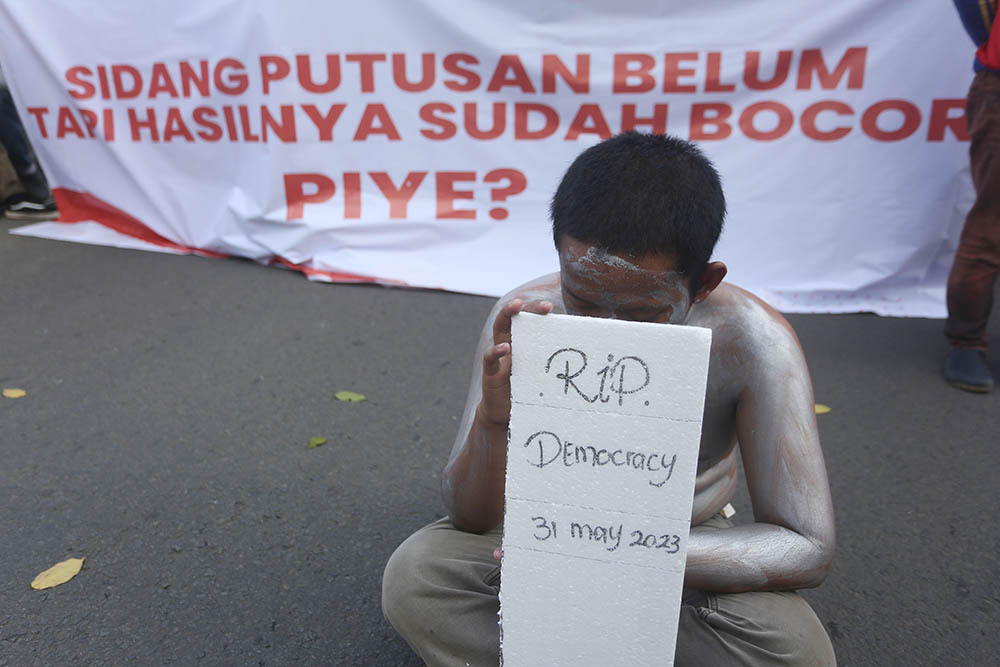 SIDANG PUTUSAN BELUM
TAPI HASILNYA SUDAH BOCOR
PIYE?
. RiP.
Democracy
31 may 2023